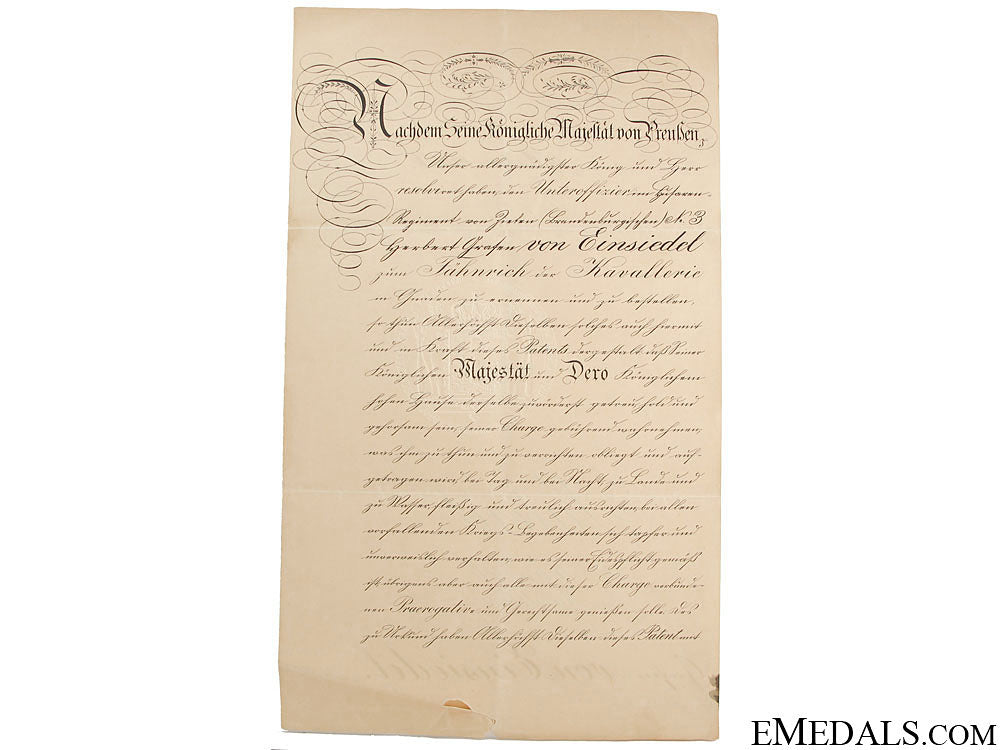 Nachdem Seine Königliche Majestät von Preußen,
Unser allergnädigster König und Herr
resolviret haben, den Unteroffizier im Husaren-
Regiment von Zieten (Brandenburgischen) № 3
Herbert Grafen von Einsiedel
zum Fähnrich der Kavallerie
in Gnaden zu ernennen und zu bestellen,
so thun Allerhöchst Dieselben solches auch hiermit
und in Kraft dieses Patents dergestalt, daß Seiner
Königlichen Majestät und Dero Königlichem
hohen Hause derselbe zuvörderst getreu, hold und
gehorsam sein, seiner Charge gebührend wahrnehmen,
was ihm zu thun und zu verrichten obliegt und auf-
getragen wird, bei Tag und bei Nacht, zu Lande und
zu Wasser, fleißig und treulich ausrichten, bei allen
vorfallenden Kriegs-Begebenheiten sich tapfer und
unverweislich verhalten, wie es seiner Eidespflicht gemäß
ist, übrigens aber auch alle mit dieser Charge verbunde-
nen Praerogative und Gerechtsame genießen solle. Des
zu Urkund haben Allerhöchst Dieselben dieses Patent mit
von Einsiedel.
EMEDALS.COM